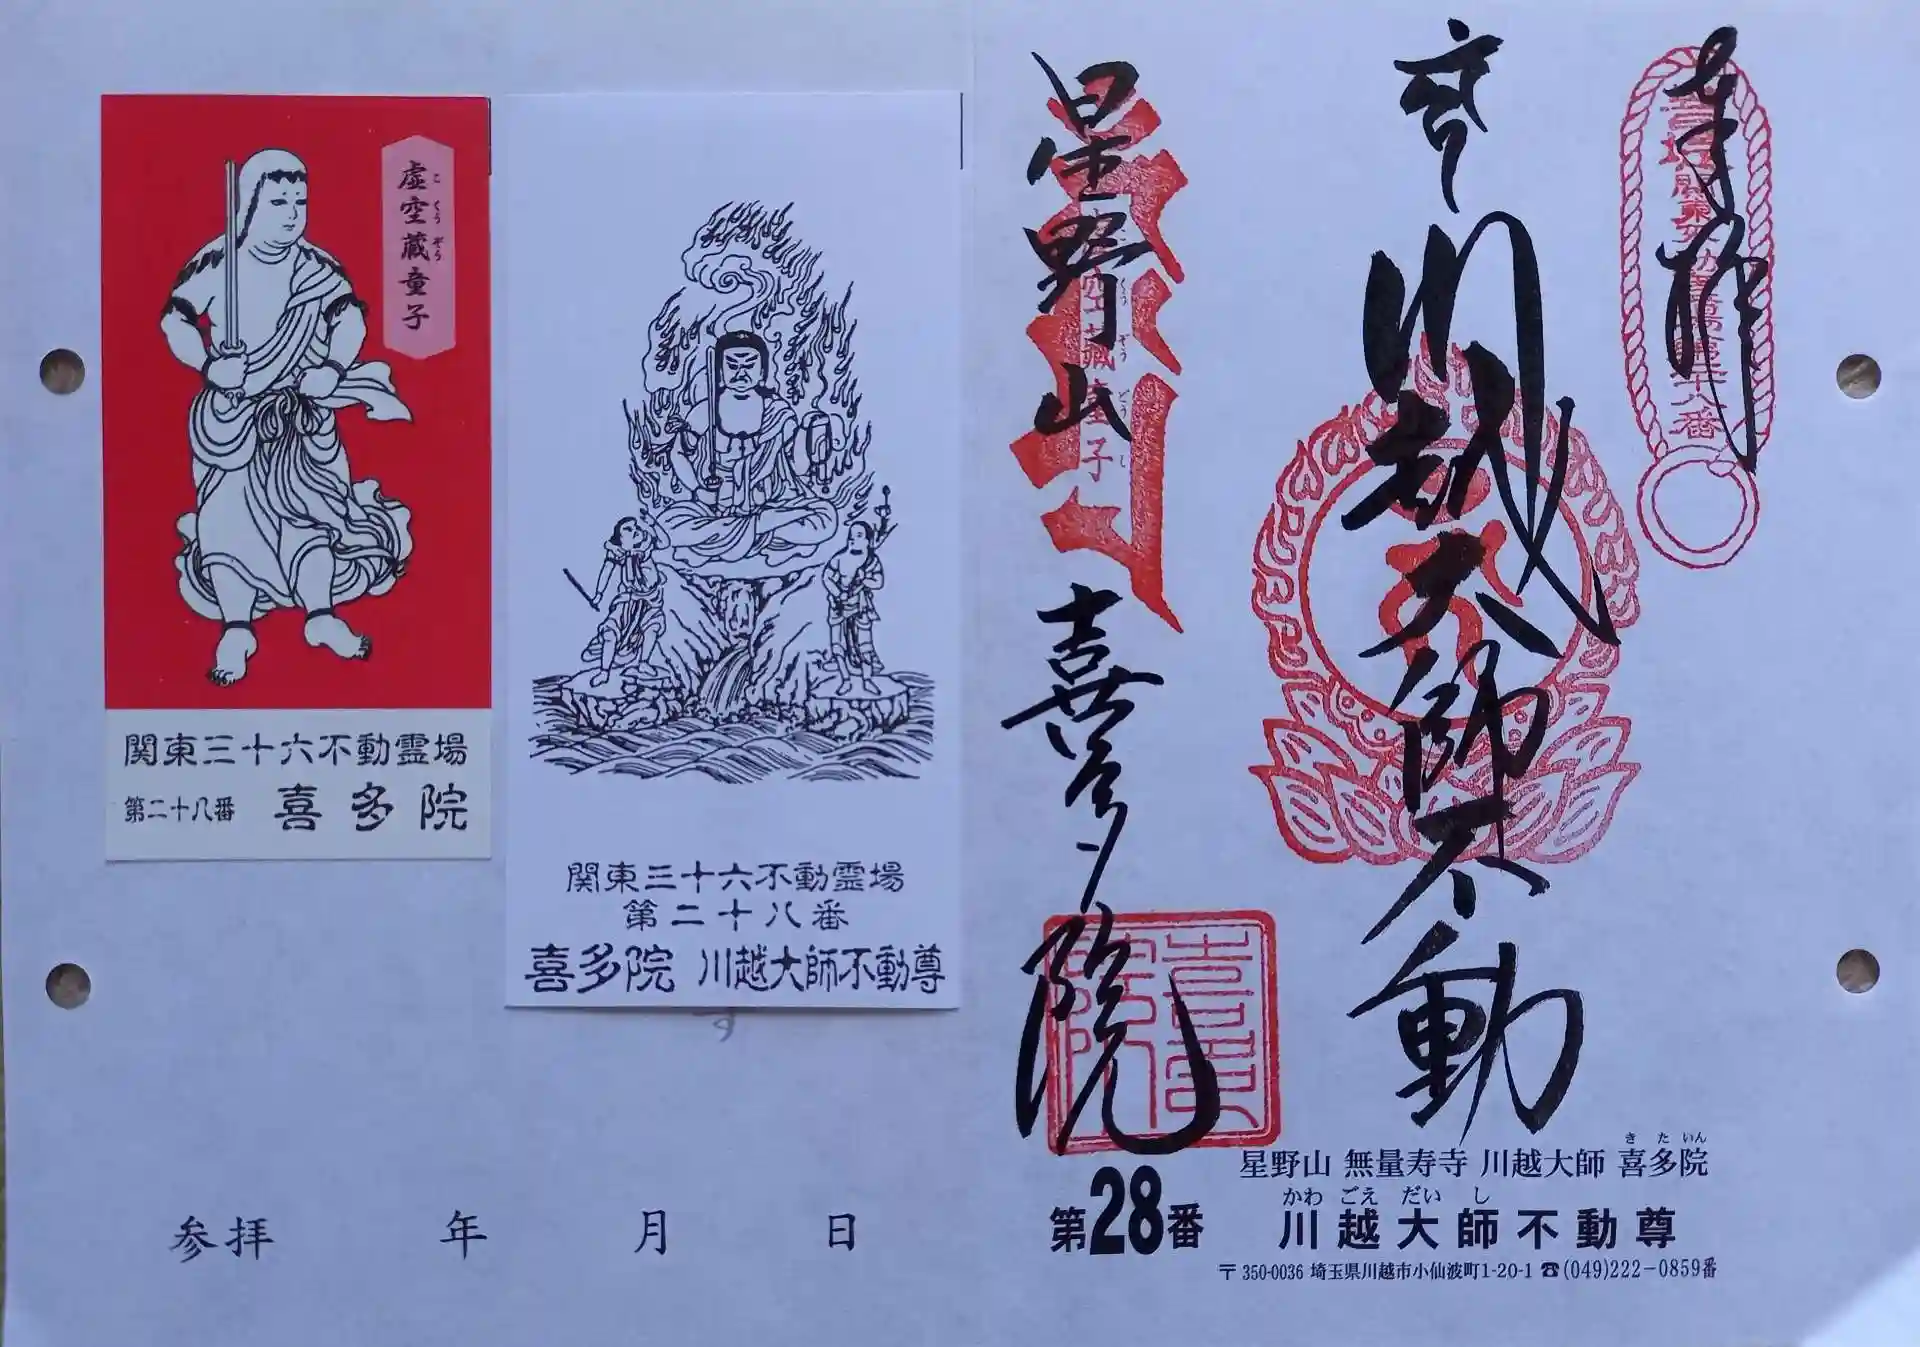 奉拝
川越大師不動
星野山
喜多院
虚空蔵童子
こくうぞう
関東三十六不動霊場
第二十八番 喜多院
関東三十六不動霊場
第二十八番
喜多院 川越大師不動尊
参拝 年 月 日
きたいん
星野山 無量寿寺 川越大師 喜多院
かわごえだいし
第28番 川越大師不動尊
〒350-0036 埼玉県川越市小仙波町1-20-1 ☎(049)222-0859番